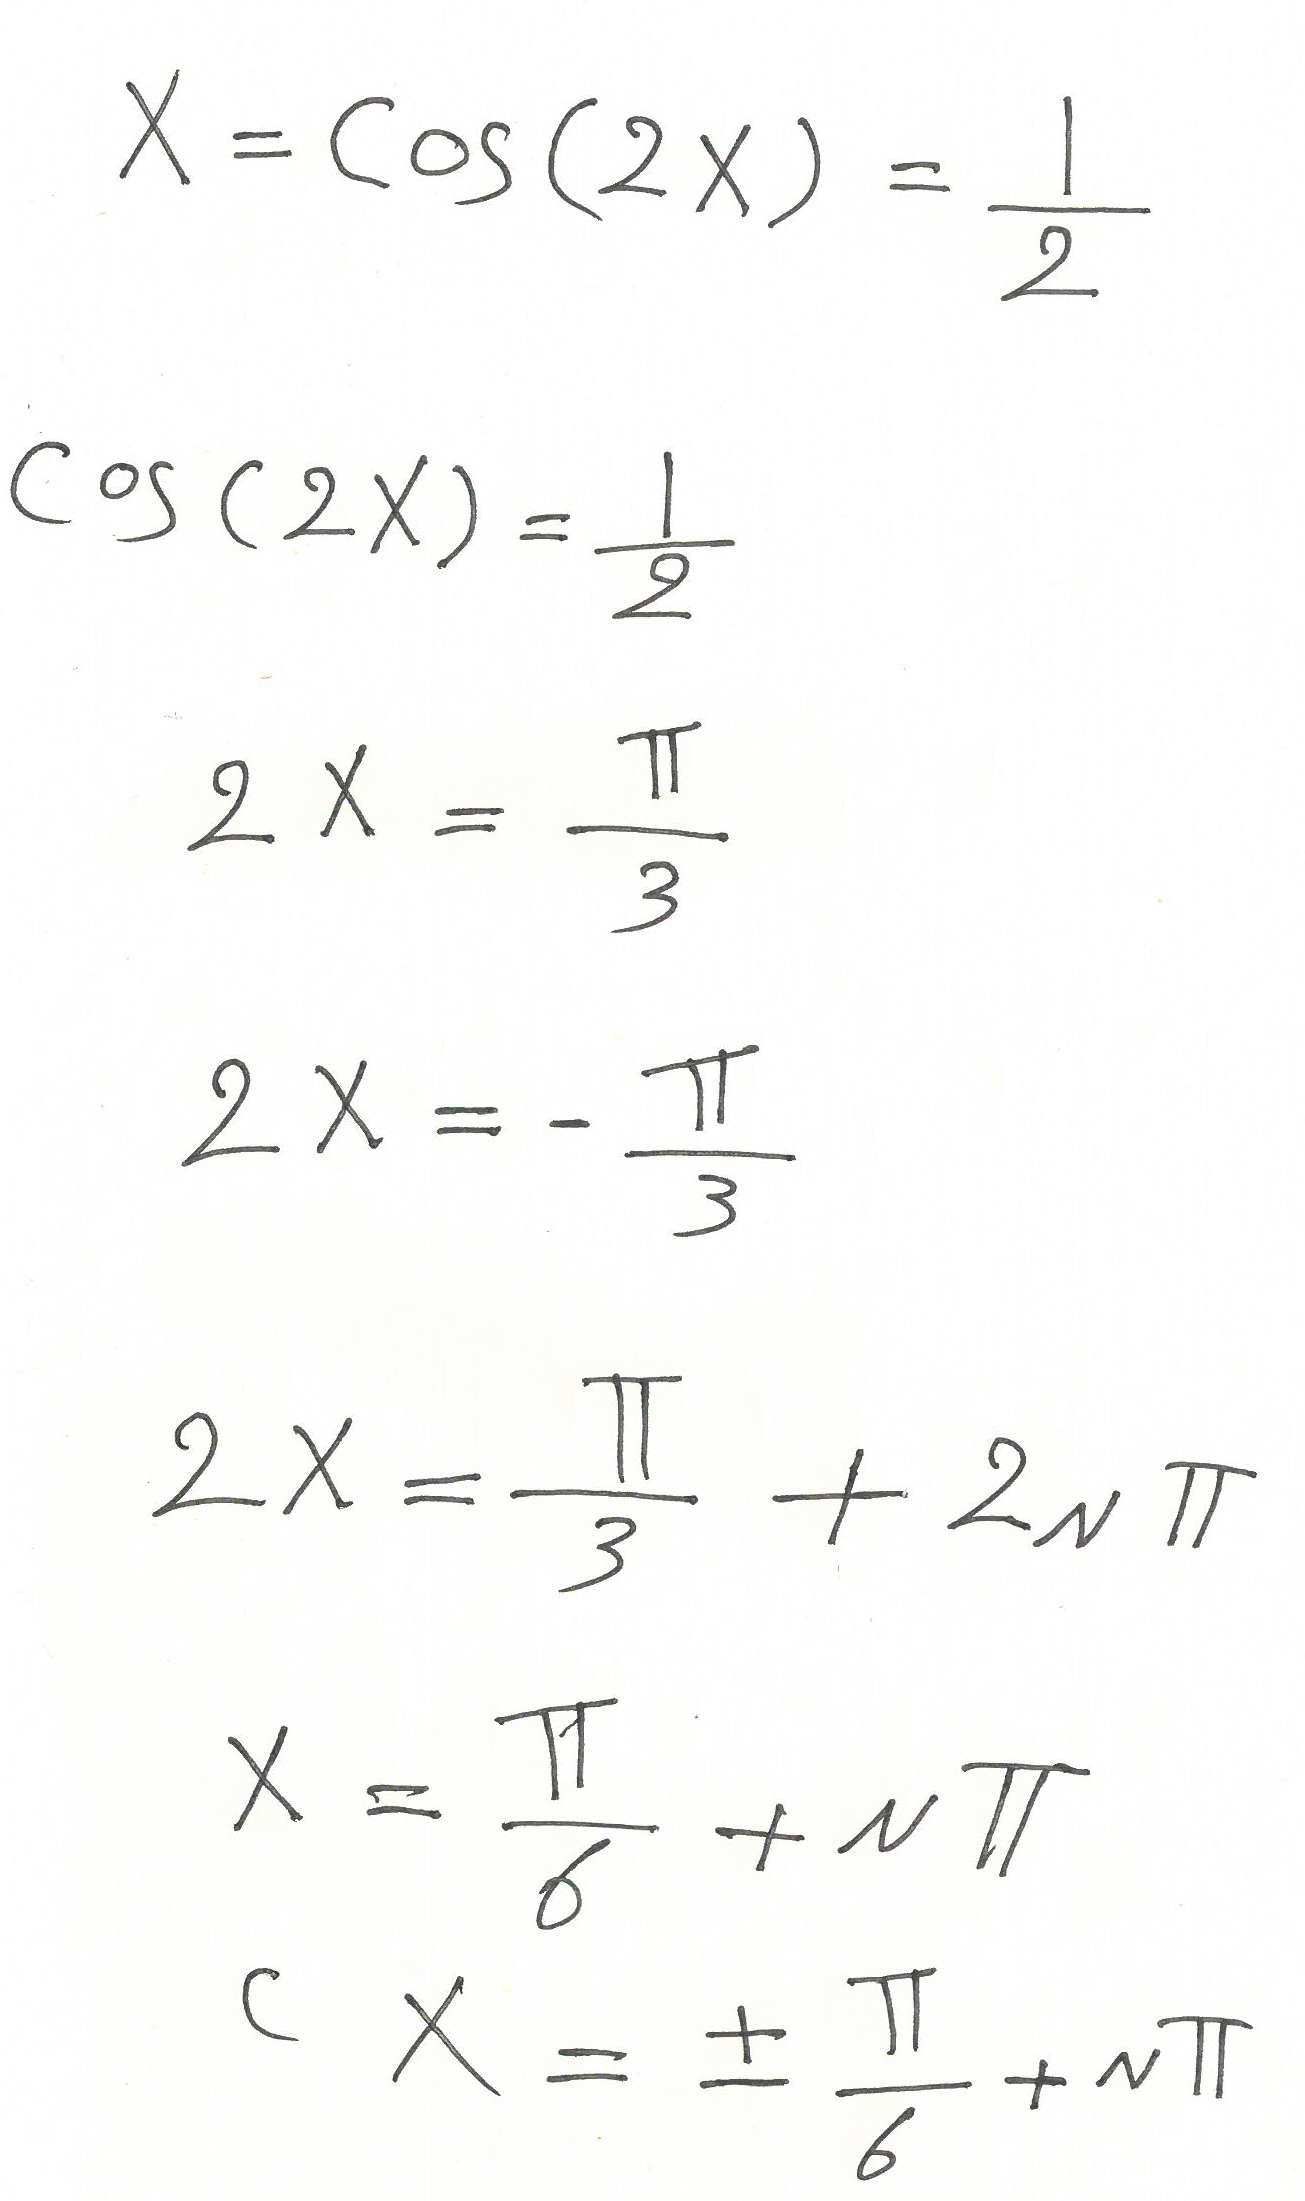 X = Cos(2X) = 1/2
Cos(2X) = 1/2
2X = π/3
2X = - π/3
2X = π/3 + 2Nπ
X = π/6 + Nπ
C X = ± π/6 + Nπ